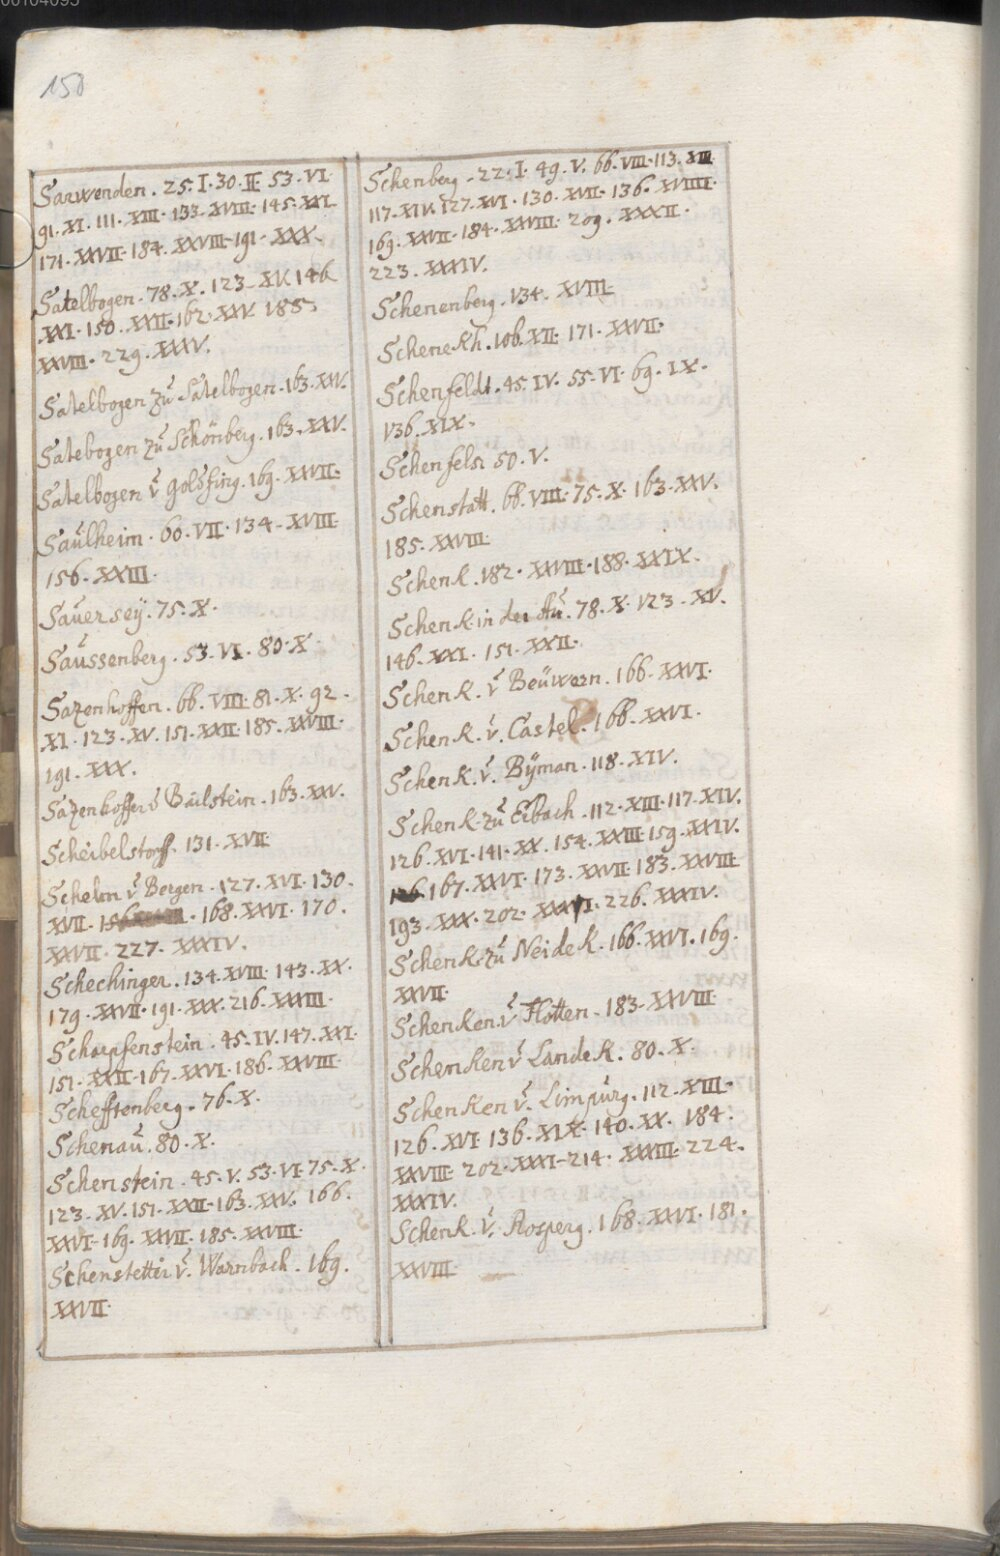 150
Sarwenden. 25. I. 30. II. 53. VI.
91. XI. 111. XIII. 133. XVIII. 145. XXI.
171. XXVII. 184. XXVIII. 191. XXX.
Satelbogen. 78. X. 123. XV. 146.
XXI. 150. XXII. 162. XXV. 185.
XXVIII. 229. XXXV.
Satelbogen zu Satelbogen. 163. XXV.
Satebogen zu Schönberg. 163. XXV.
Satelbogen v. Golsfing. 169. XXVII.
Saulheim. 60. VII. 134. XVIII.
156. XXIII.
Sauerseÿ. 75. X.
Saussenberg. 53. VI. 80. X.
Sazenhoffen. 66. VIII. 81. X. 92.
XI. 123. XV. 151. XXII. 185. XXVIII.
191. XXX.
Sazenhoffer v. Bailstein. 163. XXV.
Scheibelstorff. 131. XVII.
Schelm v. Bergen. 127. XVI. 130.
XVII. 168. XXVI. 170.
XXVII. 227. XXXIV.
Schechinger. 134. XVIII. 143. XX.
179. XXVII. 191. XXX. 216. XXXIII.
Scharpfenstein. 45. IV. 147. XXI.
151. XXII. 167. XXVI. 186. XXVIII.
Schefftenberg. 76. X.
Schenau. 80. X.
Schenstein. 45. V. 53. VI. 75. X.
123. XV. 151. XXII. 163. XXV. 166.
XXVI. 169. XXVII. 185. XXVIII.
Schenstetter v. Warnbach. 169.
XXVII.
Schenberg. 22. I. 49. V. 66. VIII. 113. XIII.
117. XIV. 127. XVI. 130. XVII. 136. XVIIII.
169. XXVII. 184. XXVIII. 209. XXXII.
223. XXXIV.
Schenenberg. 134. XVIII.
Schenekh. 106. XII. 171. XXVII.
Schenfeldt. 45. IV. 55. VI. 69. IX.
136. XIX.
Schenfels. 50. V.
Schenstatt. 66. VIII. 75. X. 163. XXV.
185. XXVIII.
Schenk. 182. XXVIII. 188. XXIX.
Schenk in der Au. 78. X. 123. XV.
146. XXI. 151. XXII.
Schenk. v. Beuwern. 166. XXVI.
Schenk. v. Castel. 166. XXVI.
Schenk. v. Bÿman. 118. XIV.
Schenk zu Eibach. 112. XIII. 117. XIV.
126. XVI. 141. XX. 154. XXIII. 159. XXIV.
167. XXVI. 173. XXVII. 183. XXVIII.
193. XXX. 202. XXXI. 226. XXXIV.
Schenk zu Neidek. 166. XXVI. 169.
XXVII.
Schenken v. Flotten. 183. XXVIII.
Schenken v. Landek. 80. X.
Schenken v. Limpurg. 112. XIII.
126. XVI. 136. XIX. 140. XX. 184.
XXVIII. 202. XXXI. 214. XXXIII. 224.
XXXIV.
Schenk. v. Rosperg. 168. XXVI. 181.
XXVIII.